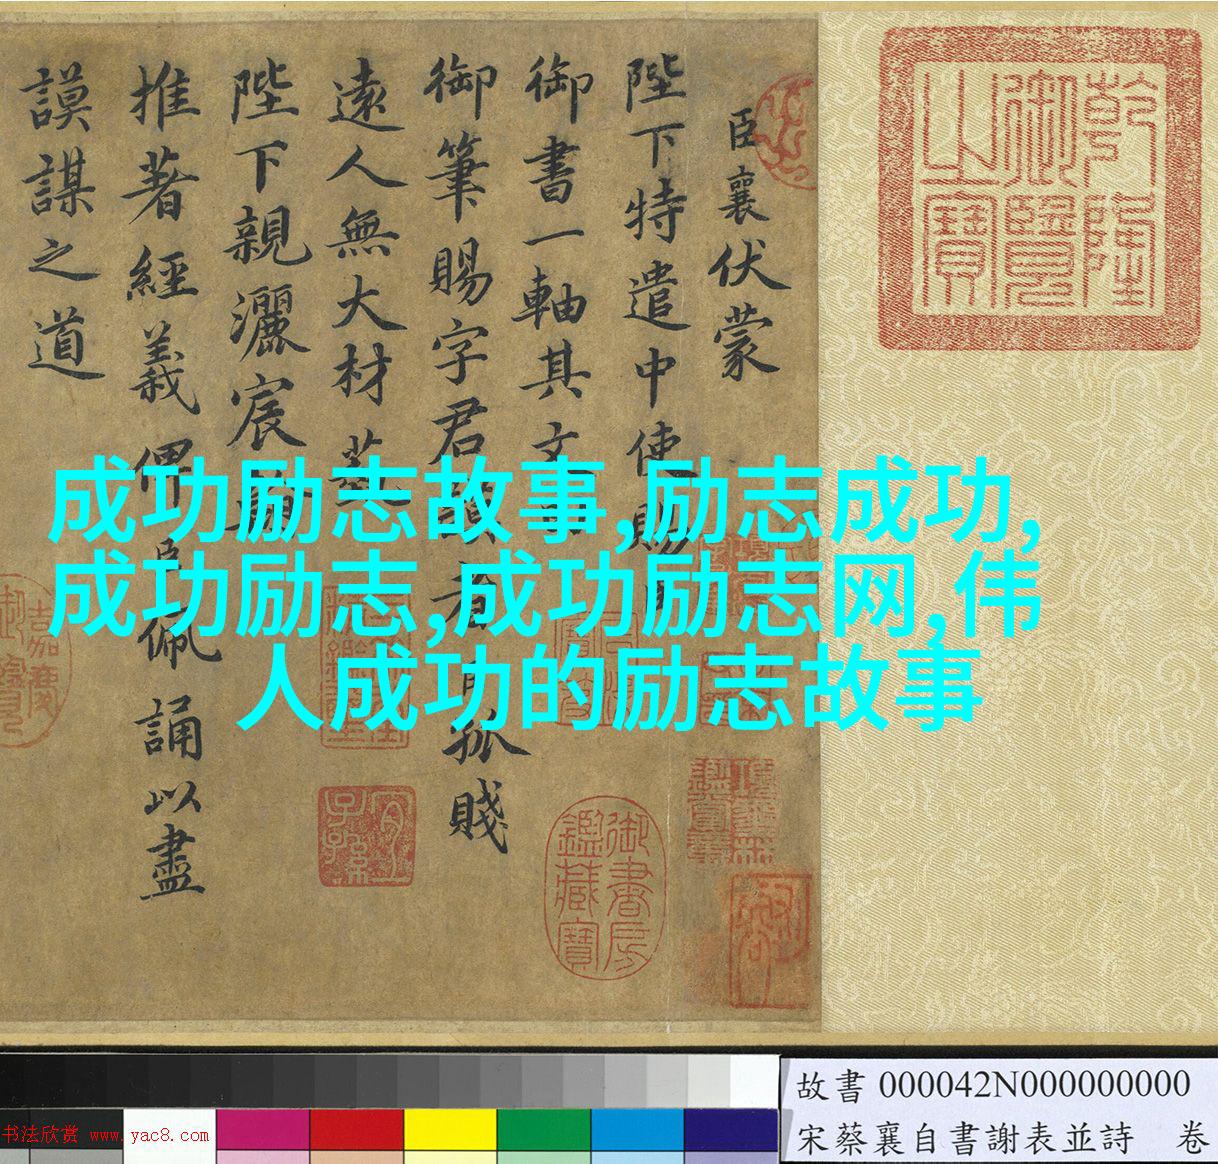 臣襄伏蒙
陛下特遣中使賜
御書一軸其文
御筆賜字君謨者孤賤
遠人無大材藝
陛下親灑宸翰
推著經義俾臣佩誦以盡
謨謀之道
乾隆
御覽
之寶
御書房
鑑藏寶
成功励志故事,励志成功,
成功励志,成功励志网,伟
人成功的励志故事
故書 000042N000000000
宋蔡襄自書謝表並詩 卷
书法欣赏 www.yac8.com